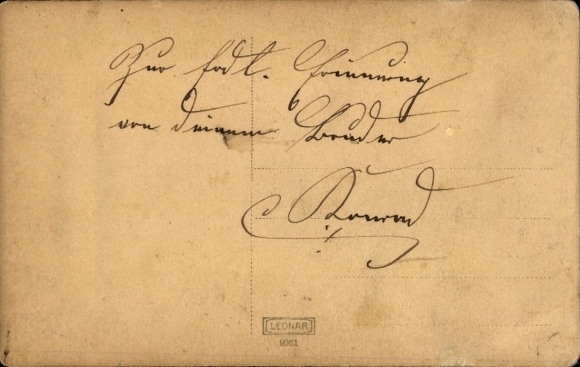 Zur frdl. Erinnerung
von deinem Bruder
Konrad
LEONAR